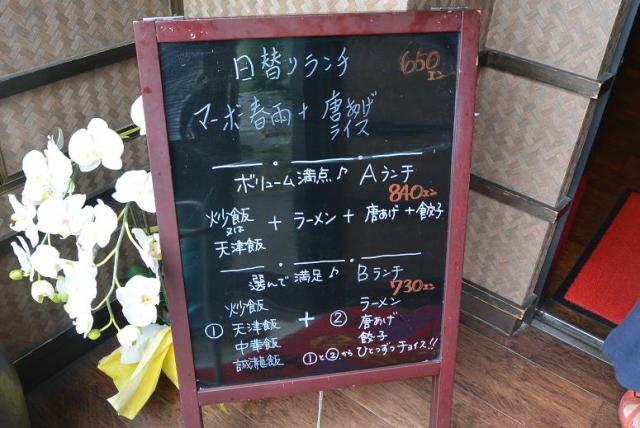 日替りランチ 650エン
マーボ春雨+唐あげ
ライス
ボリューム満点♪ Aランチ
840エン
炒飯
又は
天津飯
+ ラーメン + 唐あげ + 餃子
選んで満足♪ Bランチ
730エン
① 炒飯
天津飯
中華飯
誠龍飯
+ ② ラーメン
唐あげ
餃子
①と②からひとつずつチョイス!!